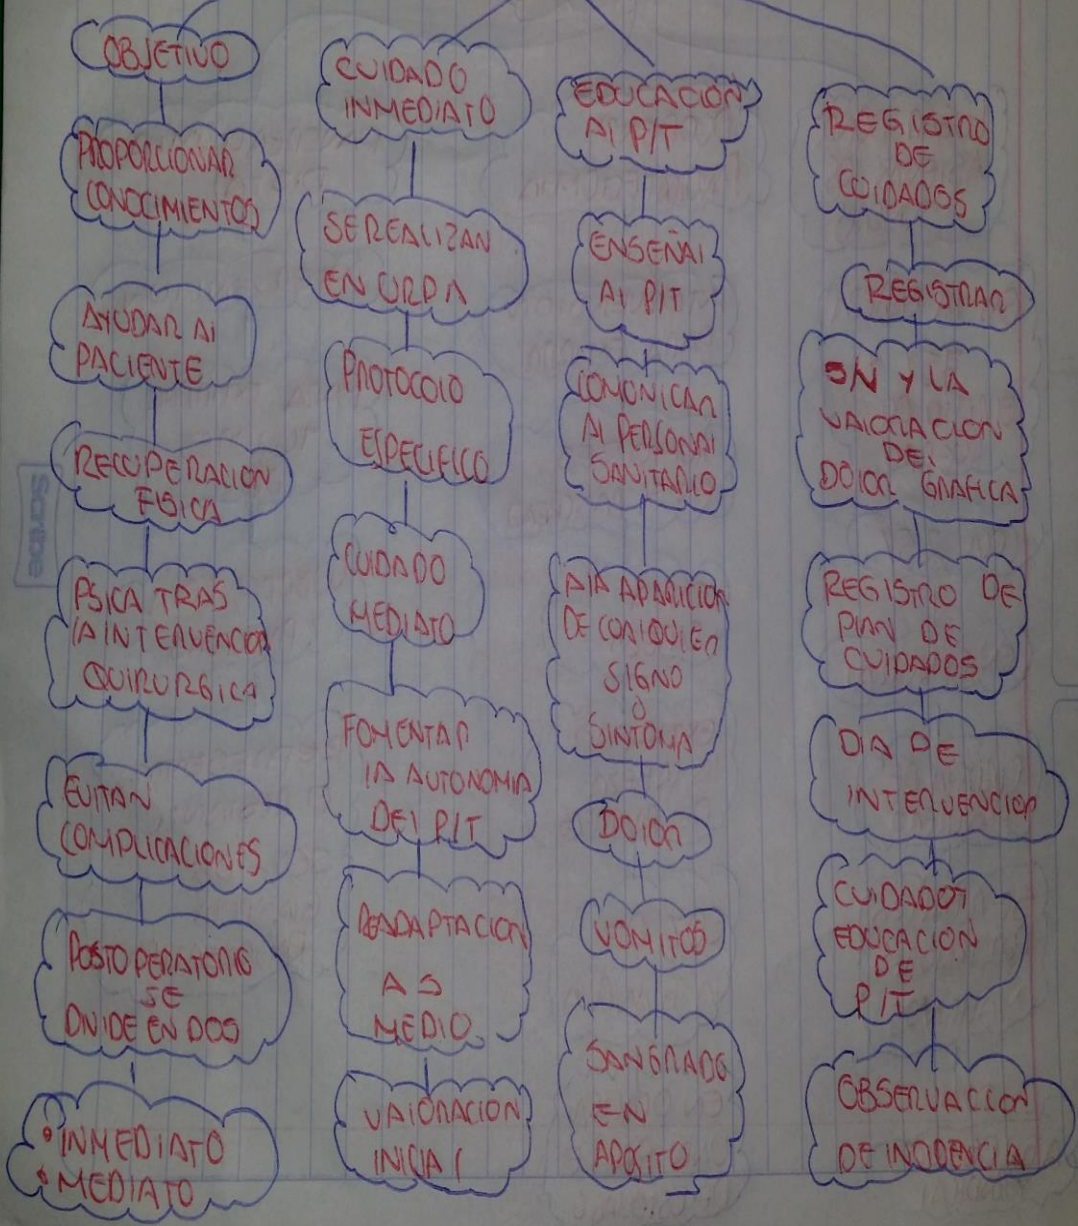 OBJETIVO
PROPORCIONAR
CONOCIMIENTOS
AYUDAR Al
PACIENTE
RECUPERACION
FISICA
PSICA TRAS
lA INTERVENCIOn
QUIRURGICA
EVITAR
COMPLICACIONES
POSTOPERATORIO
SE
DIVIDE EN DOS
• INMEDIATO
• MEDIATO
CUIDADO
INMEDIATO
SE REALIZAN
EN URPA
PROTOCOlO
ESPECIFICO
CUIDADO
MEDIATO
FOMENTAR
lA AUTONOMIA
DEl P/T
READAPTACION
AS
MEDIO
VAlORACION
INICIAl
EDUCACION
Al P/T
ENSEÑAl
Al P/T
COMUNICAR
Al PERSONAl
SANITARIO
A lA APARICION
DE CUAlQUIER
SIGNO
O
SINTOMA
DOlOR
VOMITOS
SANGRADO
EN
APOSITO
REGISTRO
DE
CUIDADOS
REGISTRAR
SN Y LA
VAlORACION
DEl
DOlOR GRAFICA
REGISTRO DE
PlAN DE
CUIDADOS
DIA DE
INTERVENCION
CUIDADOT
EDUCACION
DE
P/T
OBSERVACCION
DE INCIDENCIA
Scribe